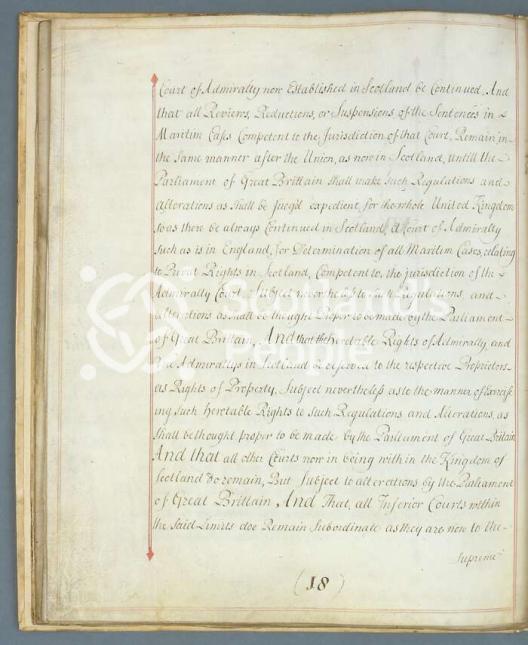 Court of Admiralty now Established in Scotland be Continued, And
that all Reviews, Reductions, or Suspensions, of the Sentences in
Maritim Cases Competent to the Jurisdiction of that Court, Remain in
the same manner after the Union, as now in Scotland, untill the
Parliament of Great Brittain shall make such Regulations and
Alterations as shall be Judg'd expedient for the whole United Kingdom
so as there be always Continued in Scotland, a Court of Admiralty
such as is in England, for Determination of all Maritim Cases, relating
to Privat Rights in Scotland, Competent to, the jurisdiction of the
Admirality Court, Subject nevertheless to such Regulations, and
alterations as shall be thought proper to be made by the Parliament
of Great Brittain, And that the Heretable Rights of Admiralty, and
Vice Admiralitys in Scotland be reserved to the respective Proprietors
as Rights of Property, Subject nevertheless as to the manner of Exercis
ing such Heretable Rights to such Regulations and Alterations, as
shall be thought proper to be made by the Parliament of Great Brittain
And that all other Courts now in being within the Kingdom of
Scotland do remain, But Subject to alterations by the Parliament
of Great Brittain, And That, all Inferior Courts within
the said Limits doe Remain Subordinate as they are now to the
Supreme
(18)
Scotland's
People